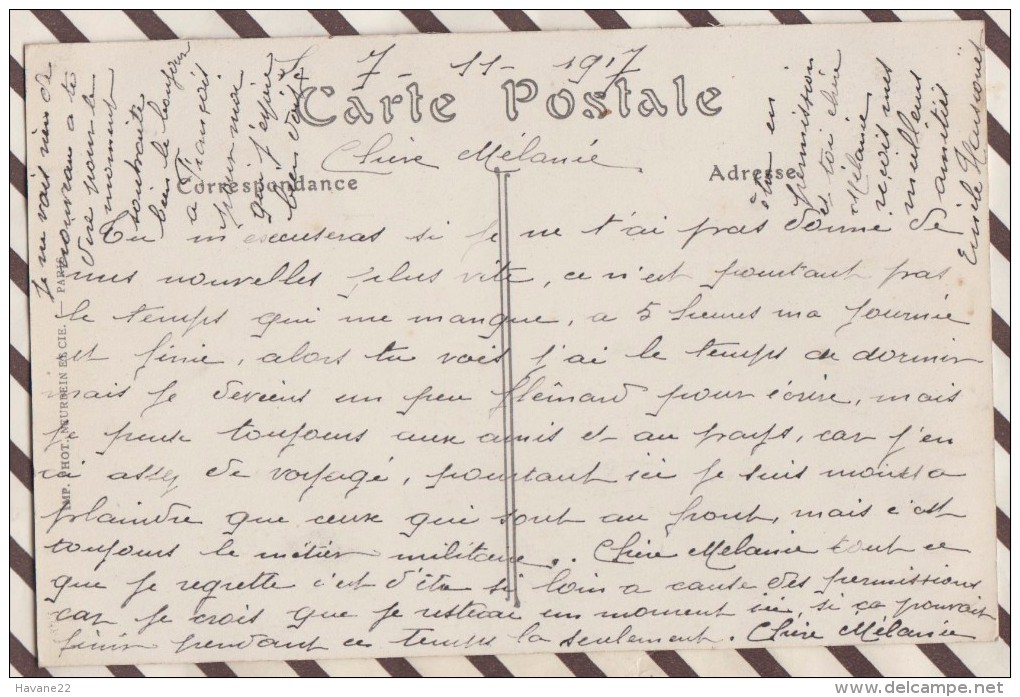 Le 7-11-1917
Carte Postale
Chère Mélanie
Correspondance
Adresse
Tu m'excuseras si je ne t'ai pas donné de
mes nouvelles plus vite, ce n'est pourtant pas
le temps qui me manque, a 5 heures ma journée
et finie, alors tu vois j'ai le temps de dormir
mais je deviens un peu flémard pour écrire, mais
je pense toujours aux amis et au pays, car j'en
ai assez de voyagé, pourtant ici je suis moins a
plaindre que ceux qui sont au front, mais c'est
toujours le métier militaire. Chère Mélanie tout ce
que je regrette c'est d'être si loin a cause des permissions
car je crois que je resterai un moment ici, si ça pouvait
finir pendant ce temps la seulement. Chère Mélanie
je ne vois rien de
nouveau a te
dire pour le
moment
souhaite
bien le bonjour
a François
pour moi
qui j'espère
bien
en
permission
et toi chère
Mélanie
reçoit mes
meilleurs
amitiés
Emile
IMP. PHOT. NEURDEIN ET CIE. — PARIS
Havane22
www.delcampe.net